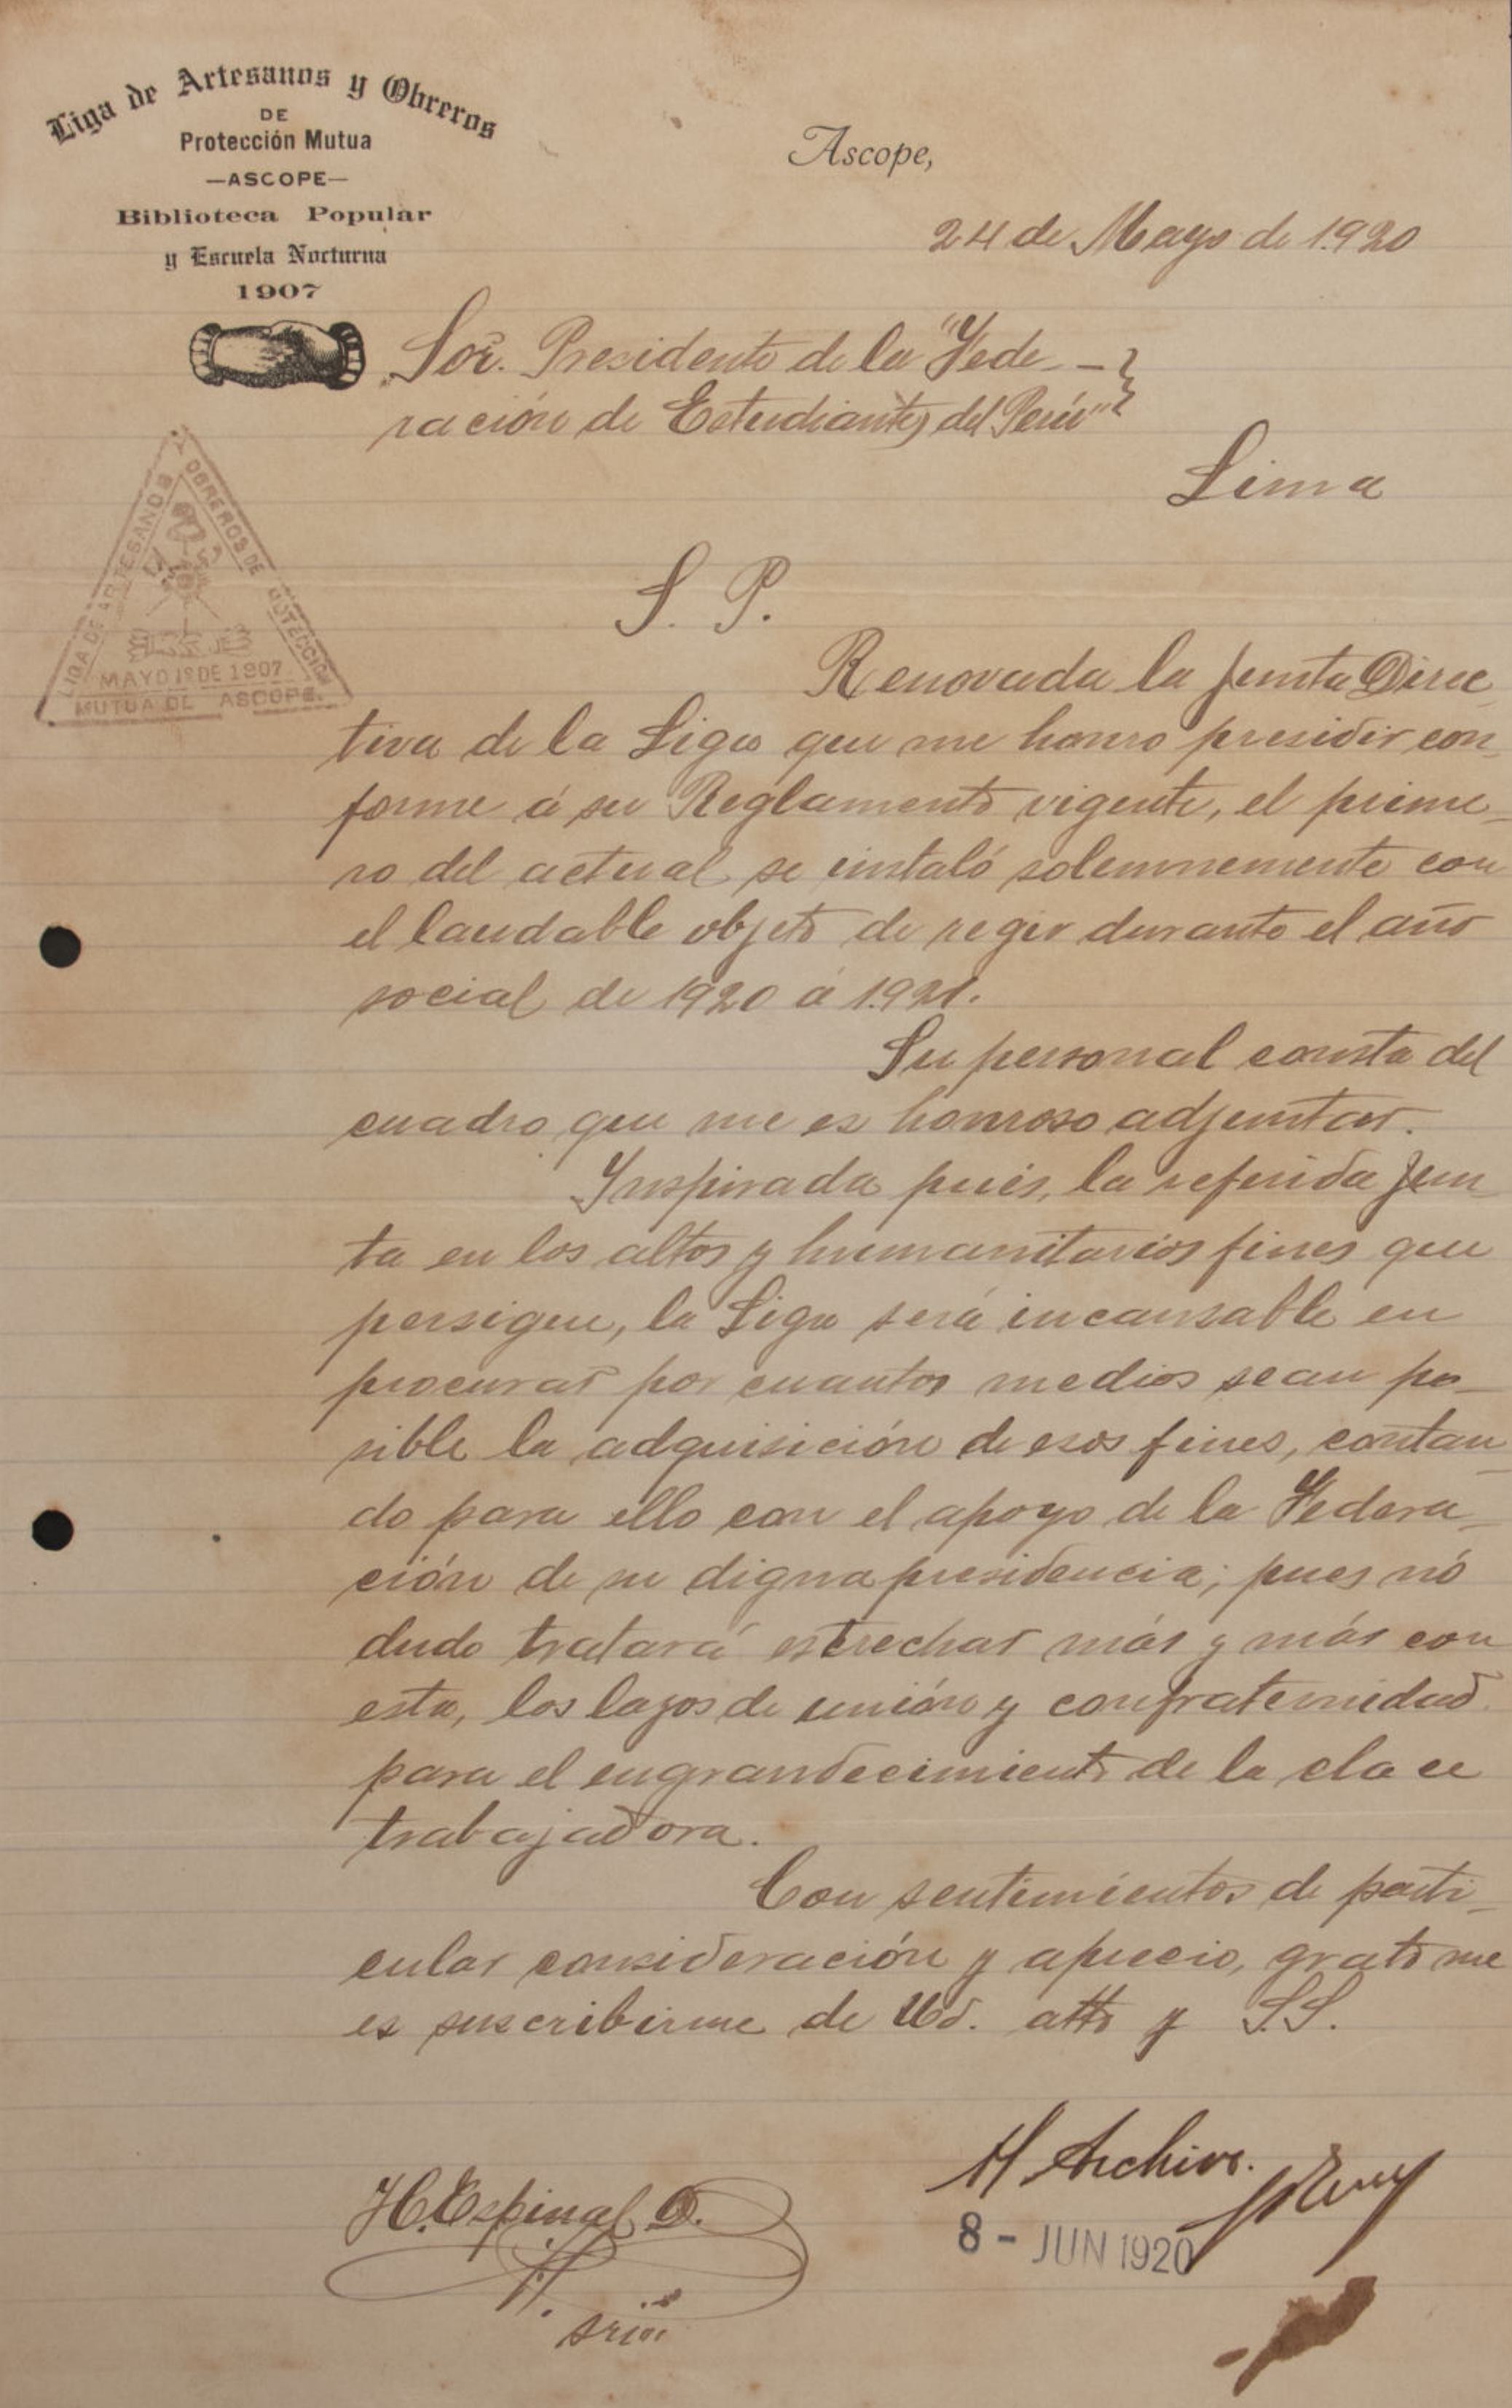 Liga de Artesanos y Obreros
DE
Protección Mutua
—ASCOPE—
Biblioteca Popular
y Escuela Nocturna
1907
Ascope,
24 de Mayo de 1.920
Sor. Presidente de la "Fede-
ración de Estudiantes del Perú"
Lima
LIGA DE ARTESANOS Y OBREROS DE PROTECCIÓN
MAYO 1º DE 1907
MUTUA DE ASCOPE.
S. P.
Renovada la Junta Direc-
tiva de la Liga que me honro presidir con-
forme á su Reglamento vigente, el prime-
ro del actual se instaló solemnemente con
el laudable objeto de regir durante el año
social de 1920 á 1.921.
Su personal consta del
cuadro que me es honroso adjuntar.
Inspirada pués, la referida Jun-
ta en los altos y humanitarios fines que
persigue, la Liga será incansable en
procurar por cuantos medios sean po-
sible la adquisición de esos fines, contan-
do para ello con el apoyo de la Federa-
ción de su digna presidencia; pues nó
dudo tratará estrechar más y más con
esta, los lazos de unión y confraternidad
para el engrandecimiento de la clace
trabajadora.
Con sentimientos de parti-
cular consideración y aprecio, grato me
es suscribirme de Ud. atto y S.S.
H. Espinal D.
srio
Al Archivo.
8 - JUN 1920